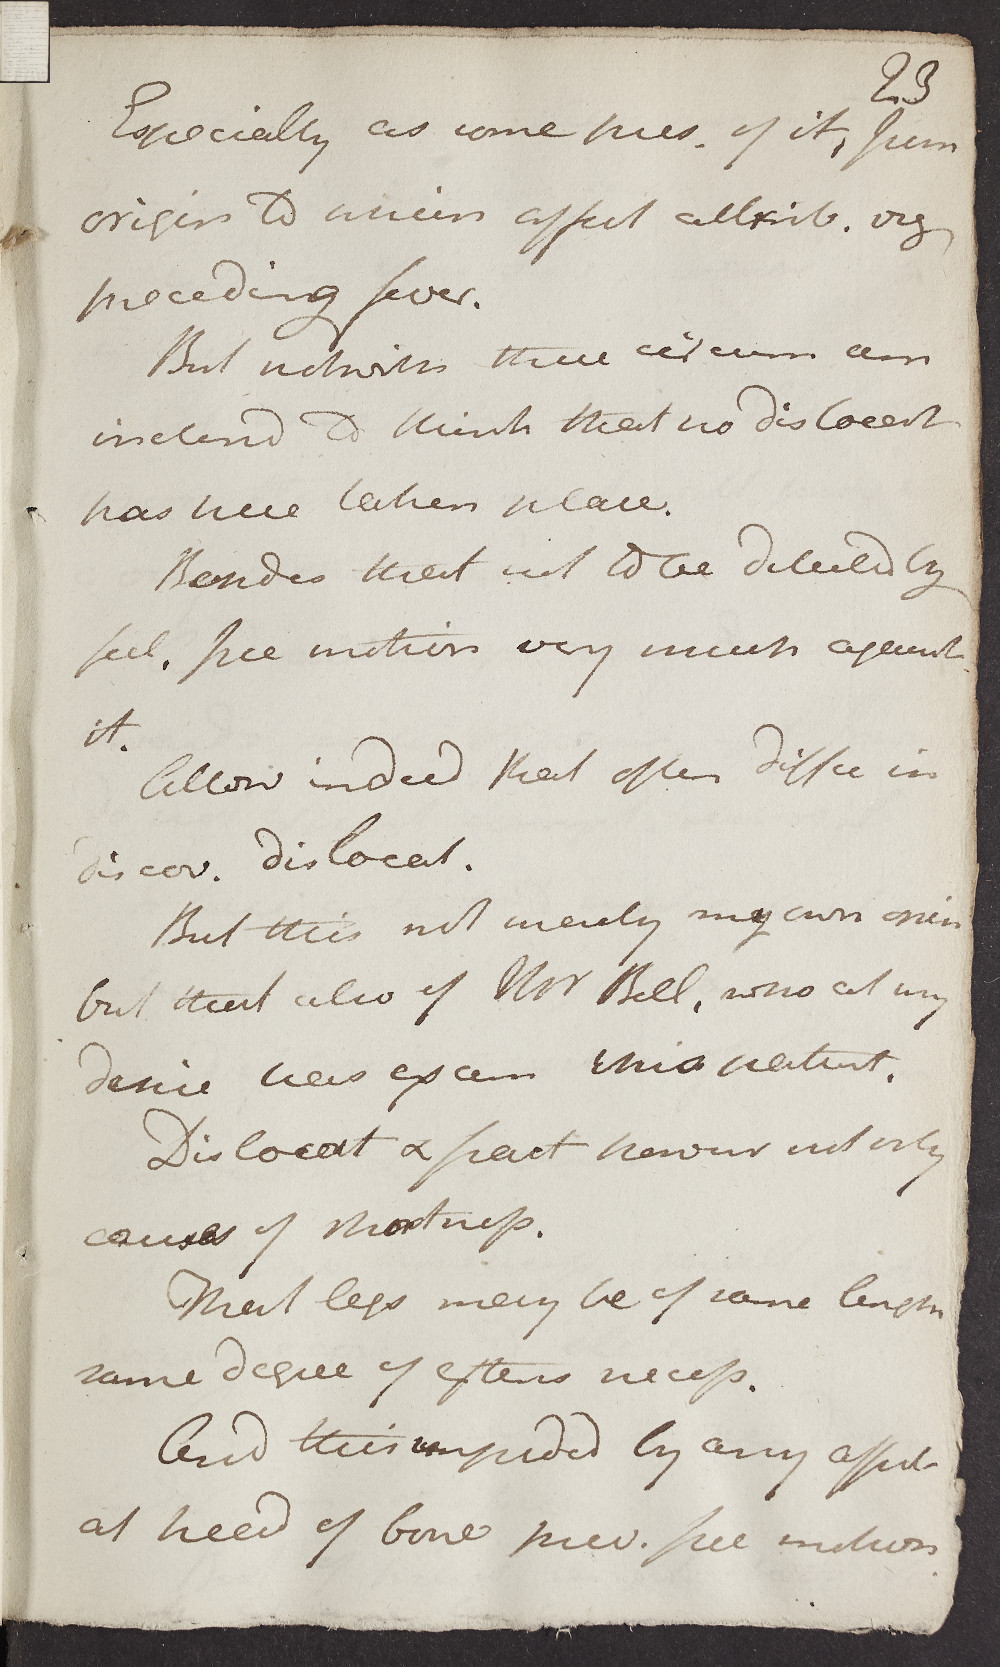 23
Especially as some pres. of it, from
origin to which affect attrib. viz
preceding fever.
But notwith these circum am
inclend to think that no dislocat
has here taken place.
Besides that not to be detected by
feel, free motion very much against
it.
Allow indeed that often diffic in
discov. dislocat.
But this not merely my own opin
but that also of Mr Bell, who at my
desire has exam this patient.
Dislocat & fract however not only
causes of shortness.
That legs may be of same length
same degree of extens necess.
And this impeded by any affect
at head of bone prev. free motion